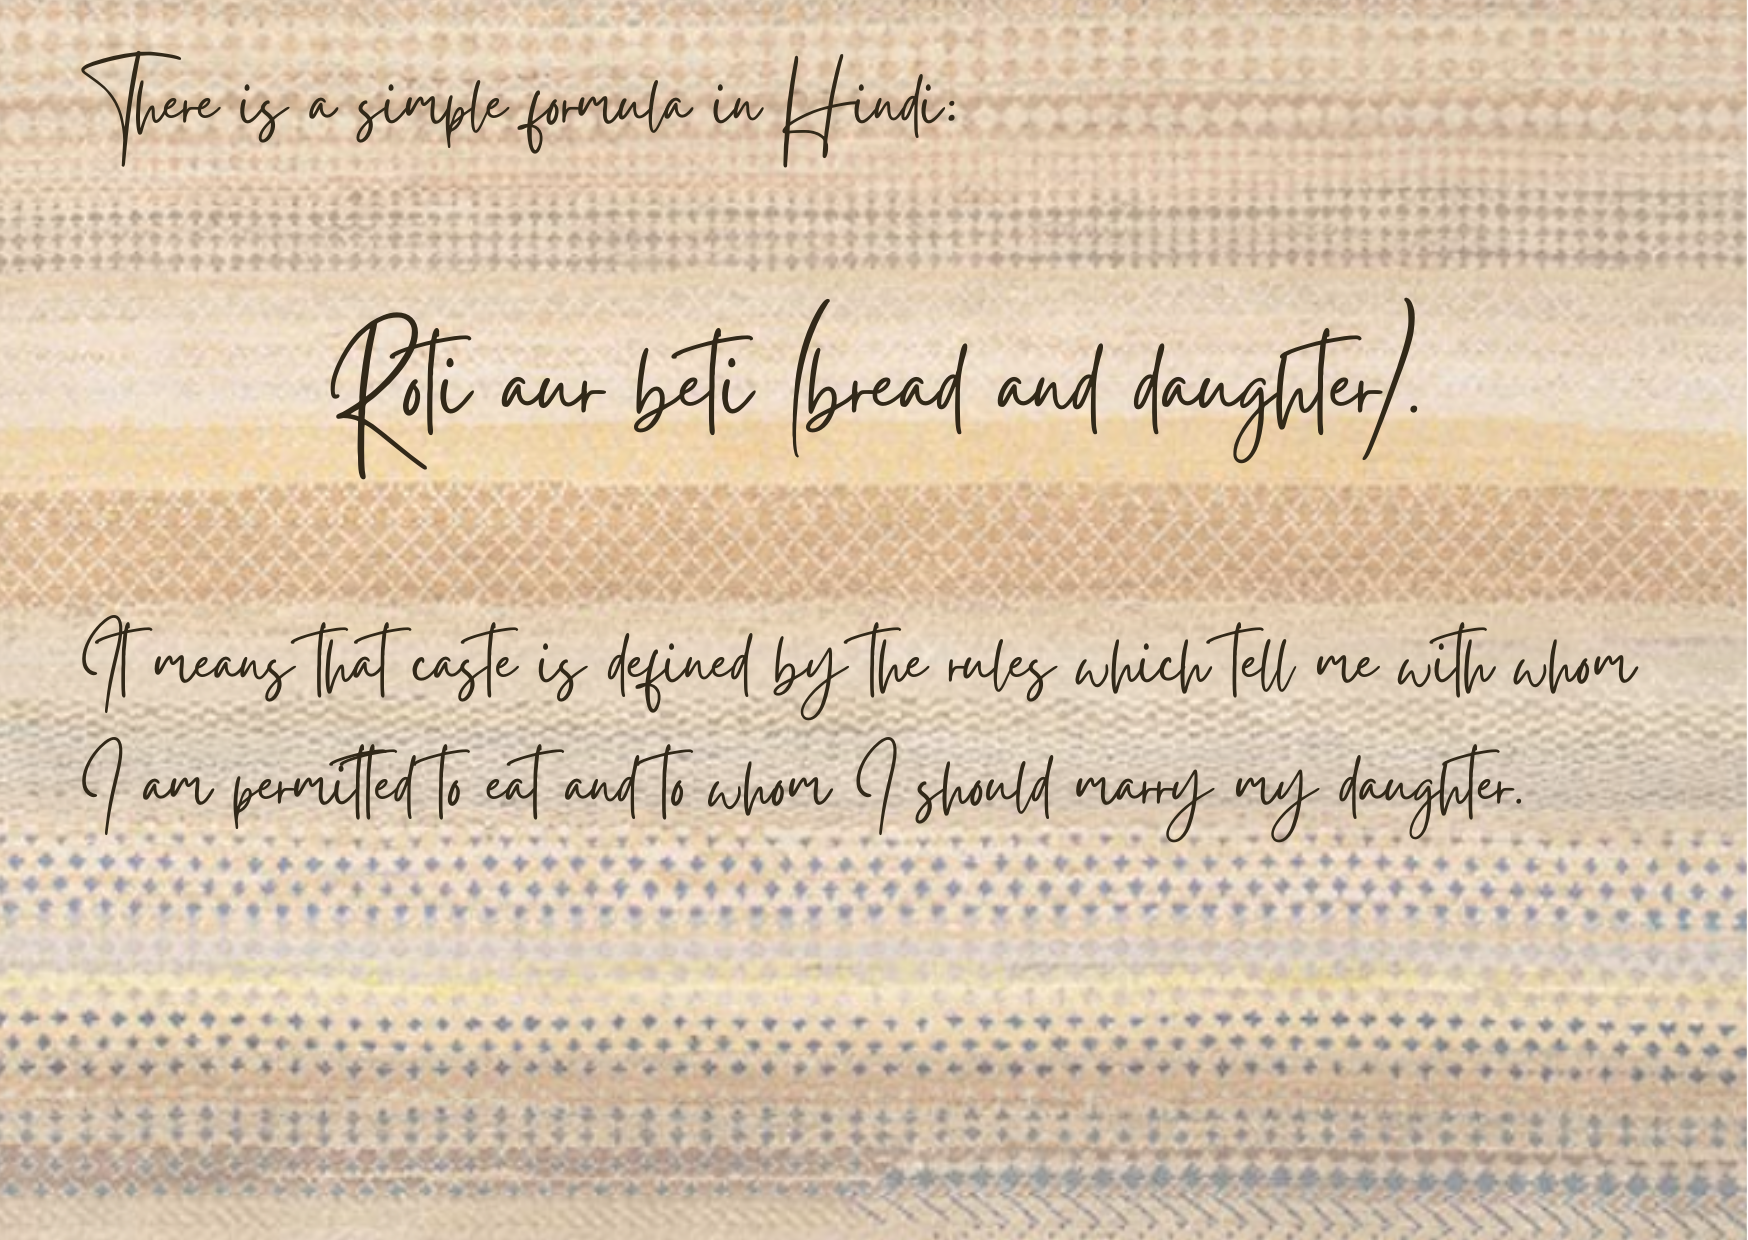 There is a simple formula in Hindi:
Roti aur beti (bread and daughter).
It means that caste is defined by the rules which tell me with whom
I am permitted to eat and to whom I should marry my daughter.